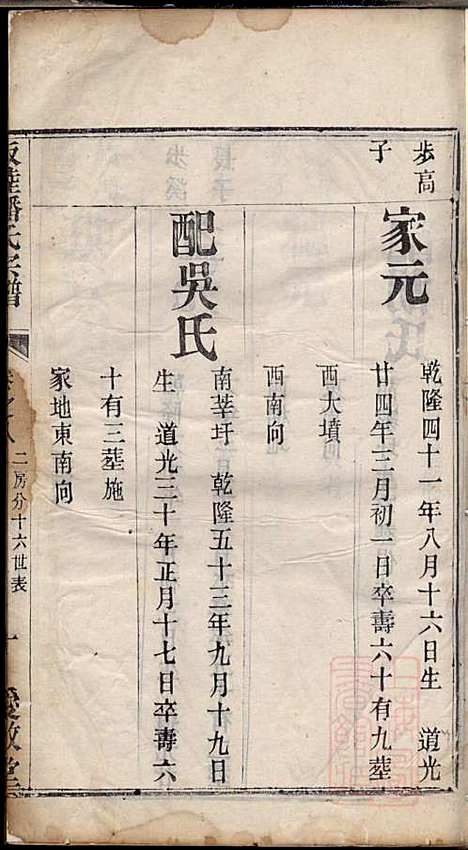 步高
子
家元
乾隆四十一年八月十六日生 道光
廿四年三月初一日卒壽六十有九塟
西大墳
西南向
配吳氏
南莘圩 乾隆五十三年九月十九日
生 道光三十年正月十七日卒壽六
十有三塟施
家地東南向
潘氏宗譜
卷之八
二房分十六世表
一
愛敬堂